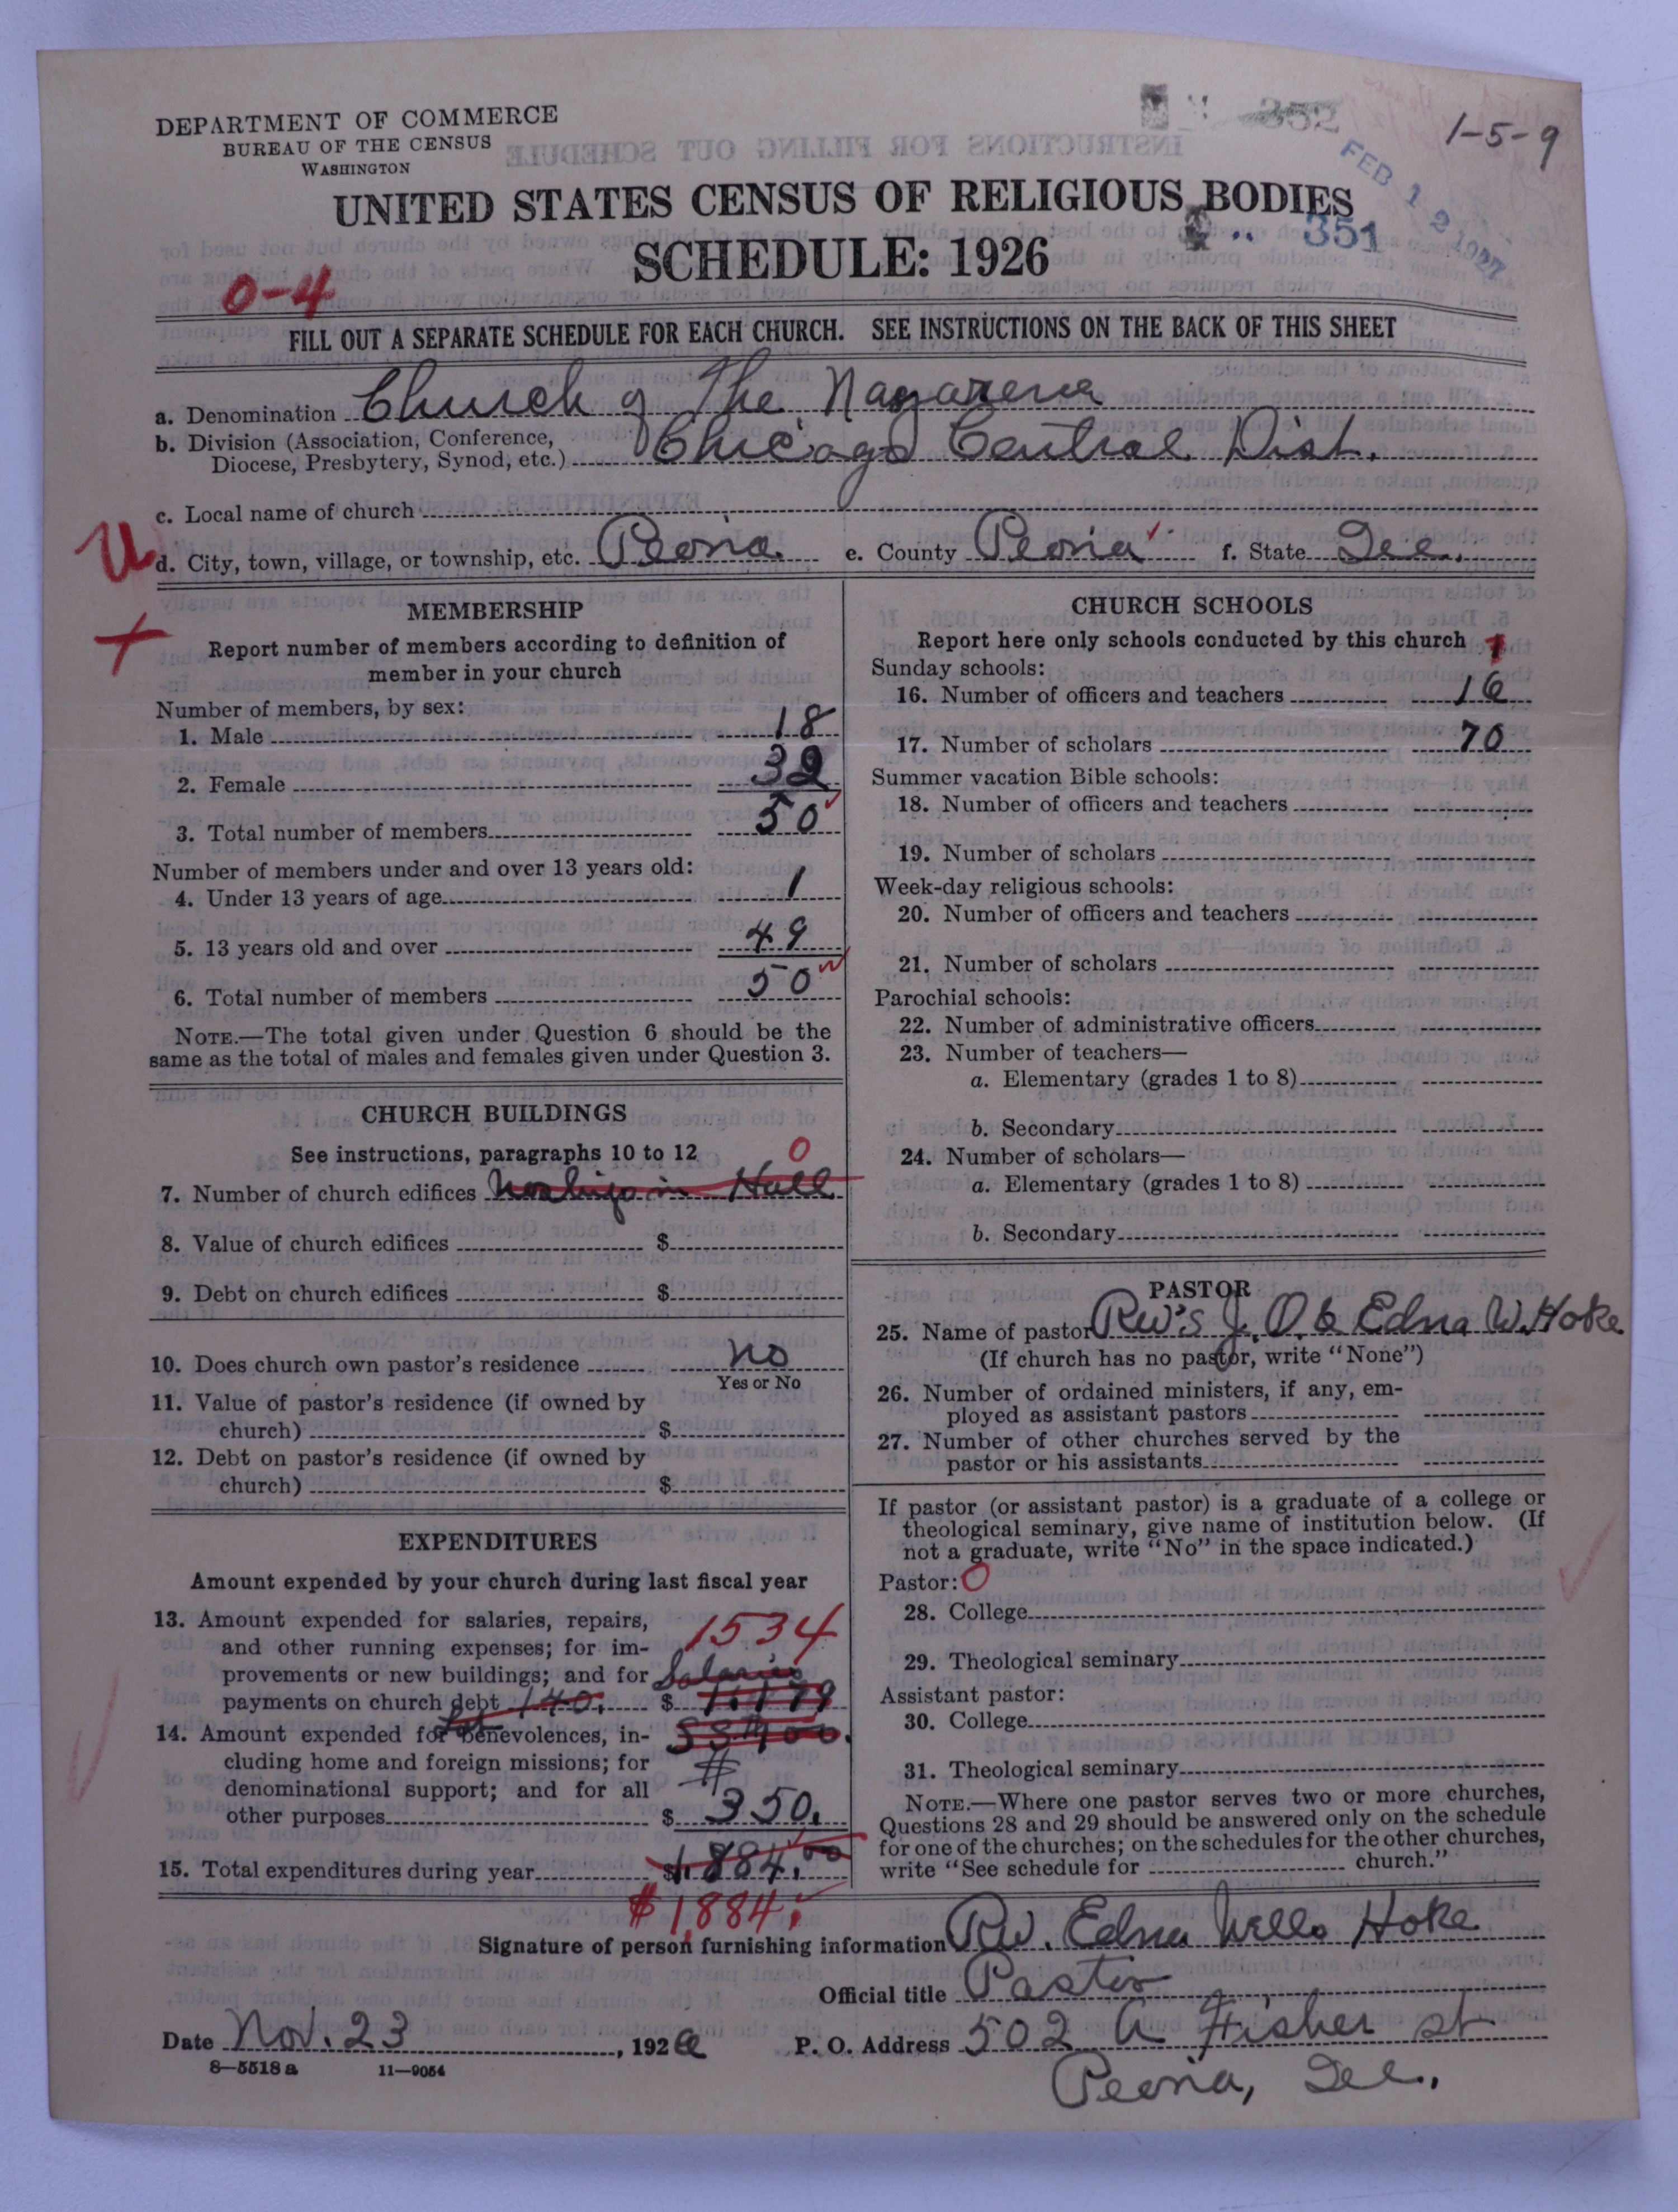 DEPARTMENT OF COMMERCE
BUREAU OF THE CENSUS
WASHINGTON
352
1-5-9
FEB 12 1927
UNITED STATES CENSUS OF RELIGIOUS BODIES
351
SCHEDULE: 1926
0-4
FILL OUT A SEPARATE SCHEDULE FOR EACH CHURCH. SEE INSTRUCTIONS ON THE BACK OF THIS SHEET
a. Denomination Church of The Nazarene
b. Division (Association, Conference,
Diocese, Presbytery, Synod, etc.) Chicago Central Dist.
c. Local name of church
U
d. City, town, village, or township, etc. Peoria e. County Peoria f. State Ill.
MEMBERSHIP
Report number of members according to definition of
member in your church
Number of members, by sex:
1. Male 18
2. Female 32
3. Total number of members 50
Number of members under and over 13 years old:
4. Under 13 years of age 1
5. 13 years old and over 49
6. Total number of members 50
NOTE.—The total given under Question 6 should be the
same as the total of males and females given under Question 3.
CHURCH BUILDINGS
See instructions, paragraphs 10 to 12 0
7. Number of church edifices in Hall
8. Value of church edifices $
9. Debt on church edifices $
10. Does church own pastor's residence no
Yes or No
11. Value of pastor's residence (if owned by
church) $
12. Debt on pastor's residence (if owned by
church) $
EXPENDITURES
Amount expended by your church during last fiscal year
13. Amount expended for salaries, repairs,
and other running expenses; for im- 1534
provements or new buildings; and for Salaries
payments on church debt $
14. Amount expended for benevolences, in-
cluding home and foreign missions; for
denominational support; and for all
other purposes $ 350.
15. Total expenditures during year $1.884.00
$1,884.
CHURCH SCHOOLS
Report here only schools conducted by this church 1
Sunday schools:
16. Number of officers and teachers 16
17. Number of scholars 70
Summer vacation Bible schools:
18. Number of officers and teachers
19. Number of scholars
Week-day religious schools:
20. Number of officers and teachers
21. Number of scholars
Parochial schools:
22. Number of administrative officers
23. Number of teachers—
a. Elementary (grades 1 to 8)
b. Secondary
24. Number of scholars—
a. Elementary (grades 1 to 8)
b. Secondary
PASTOR
25. Name of pastor Rev's J. O. & Edna W. Hoke
(If church has no pastor, write "None")
26. Number of ordained ministers, if any, em-
ployed as assistant pastors
27. Number of other churches served by the
pastor or his assistants
If pastor (or assistant pastor) is a graduate of a college or
theological seminary, give name of institution below. (If
not a graduate, write "No" in the space indicated.)
Pastor: 0
28. College
29. Theological seminary
Assistant pastor:
30. College
31. Theological seminary
NOTE.—Where one pastor serves two or more churches,
Questions 28 and 29 should be answered only on the schedule
for one of the churches; on the schedules for the other churches,
write "See schedule for church."
Signature of person furnishing information Rev. Edna Wells Hoke
Official title Pastor
Date Nov. 23, 1926 P. O. Address 502 A Fisher st
8—5518 a 11—9054
Peoria, Ill.,